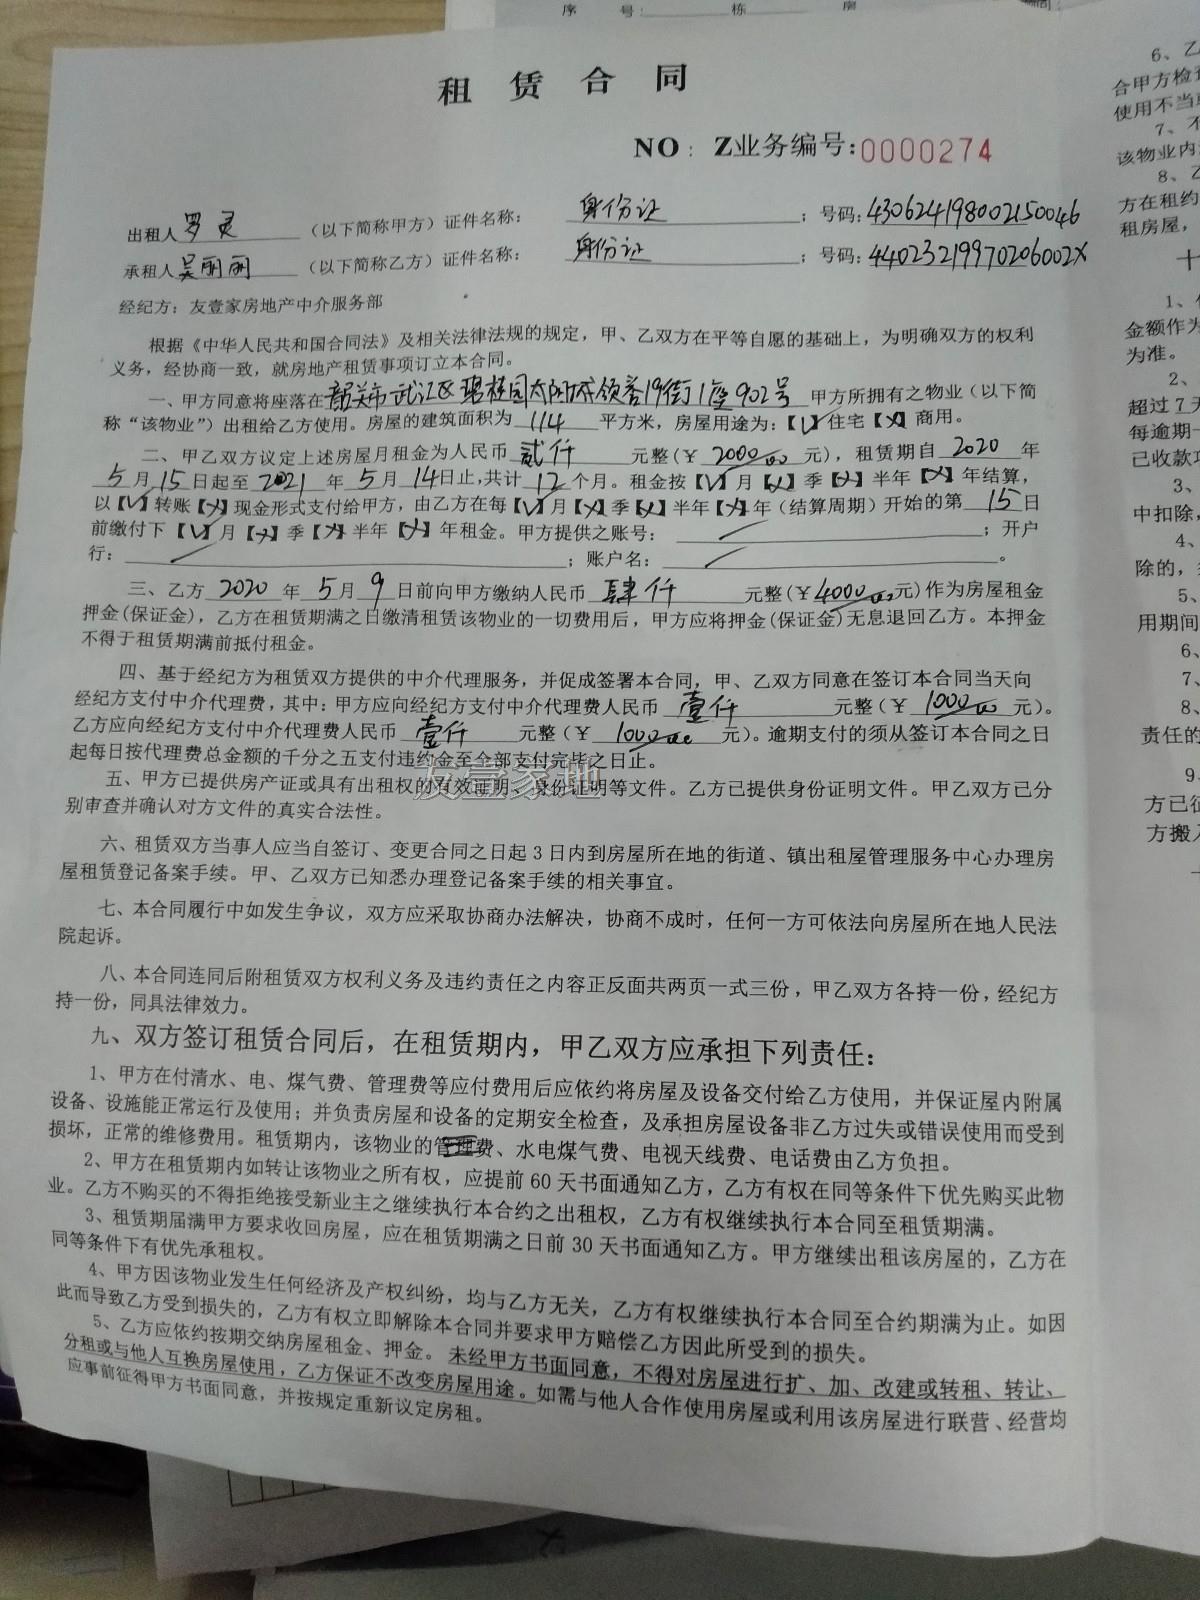 序 号: 栋 房
租赁合同
NO: Z业务编号:0000274
出租人罗灵（以下简称甲方）证件名称: 身份证；号码:430624198002150046
承租人吴丽丽（以下简称乙方）证件名称: 身份证；号码:44023219970206002X
经纪方：友壹家房地产中介服务部
根据《中华人民共和国合同法》及相关法律法规的规定，甲、乙双方在平等自愿的基础上，为明确双方的权利
义务，经协商一致，就房地产租赁事项订立本合同。
一、甲方同意将座落在韶关市武江区碧桂园太阳城领誉19街1座902号甲方所拥有之物业（以下简
称“该物业”）出租给乙方使用。房屋的建筑面积为 114 平方米，房屋用途为:【√】住宅【X】商用。
二、甲乙双方议定上述房屋月租金为人民币 贰仟 元整(￥ 2000.00 元)，租赁期自 2020 年
5月15日起至 2021 年 5 月 14日止,共计 12 个月。租金按【√】月【X】季【X】半年【X】年结算，
以【√】转账【X】现金形式支付给甲方，由乙方在每【√】月【X】季【X】半年【X】年（结算周期）开始的第 15日
前缴付下【√】月【X】季【X】半年【X】年租金。甲方提供之账号: ；开户
行: ；账户名: 。
三、乙方 2020 年 5月 9 日前向甲方缴纳人民币 肆仟 元整(￥4000.00元)作为房屋租金
押金(保证金)，乙方在租赁期满之日缴清租赁该物业的一切费用后，甲方应将押金(保证金)无息退回乙方。本押金
不得于租赁期满前抵付租金。
四、基于经纪方为租赁双方提供的中介代理服务，并促成签署本合同，甲、乙双方同意在签订本合同当天向
经纪方支付中介代理费，其中：甲方应向经纪方支付中介代理费人民币 壹仟 元整（￥ 1000.00 元）。
乙方应向经纪方支付中介代理费人民币 壹仟 元整（￥ 1000.00 元）。逾期支付的须从签订本合同之日
起每日按代理费总金额的千分之五支付违约金至全部支付完毕之日止。
友壹家地
五、甲方已提供房产证或具有出租权的有效证明、身份证明等文件。乙方已提供身份证明文件。甲乙双方已分
别审查并确认对方文件的真实合法性。
六、租赁双方当事人应当自签订、变更合同之日起 3 日内到房屋所在地的街道、镇出租屋管理服务中心办理房
屋租赁登记备案手续。甲、乙双方已知悉办理登记备案手续的相关事宜。
七、本合同履行中如发生争议，双方应采取协商办法解决，协商不成时，任何一方可依法向房屋所在地人民法
院起诉。
八、本合同连同后附租赁双方权利义务及违约责任之内容正反面共两页一式三份，甲乙双方各持一份，经纪方
持一份，同具法律效力。
九、双方签订租赁合同后，在租赁期内，甲乙双方应承担下列责任：
1、甲方在付清水、电、煤气费、管理费等应付费用后应依约将房屋及设备交付给乙方使用，并保证屋内附属
设备、设施能正常运行及使用；并负责房屋和设备的定期安全检查，及承担房屋设备非乙方过失或错误使用而受到
损坏，正常的维修费用。租赁期内，该物业的管理费、水电煤气费、电视天线费、电话费由乙方负担。
2、甲方在租赁期内如转让该物业之所有权，应提前 60 天书面通知乙方，乙方有权在同等条件下优先购买此物
业。乙方不购买的不得拒绝接受新业主之继续执行本合约之出租权，乙方有权继续执行本合同至租赁期满。
3、租赁期届满甲方要求收回房屋，应在租赁期满之日前 30 天书面通知乙方。甲方继续出租该房屋的，乙方在
同等条件下有优先承租权。
4、甲方因该物业发生任何经济及产权纠纷，均与乙方无关，乙方有权继续执行本合同至合约期满为止。如因
此而导致乙方受到损失的，乙方有权立即解除本合同并要求甲方赔偿乙方因此所受到的损失。
5、乙方应依约按期交纳房屋租金、押金。未经甲方书面同意，不得对房屋进行扩、加、改建或转租、转让、
分租或与他人互换房屋使用，乙方保证不改变房屋用途。如需与他人合作使用房屋或利用该房屋进行联营、经营均
应事前征得甲方书面同意，并按规定重新议定房租。
6、乙
合甲方检查
使用不当
7、不
该物业内
8、乙
方在租约
租房屋，
十
1、
金额作为
为准。
2、
超过 7 天
每逾期一
已收款项
3、
中扣除，
4、
除的，
5、
用期间
6、
7、
8、
责任的
9、
方已征
方搬入